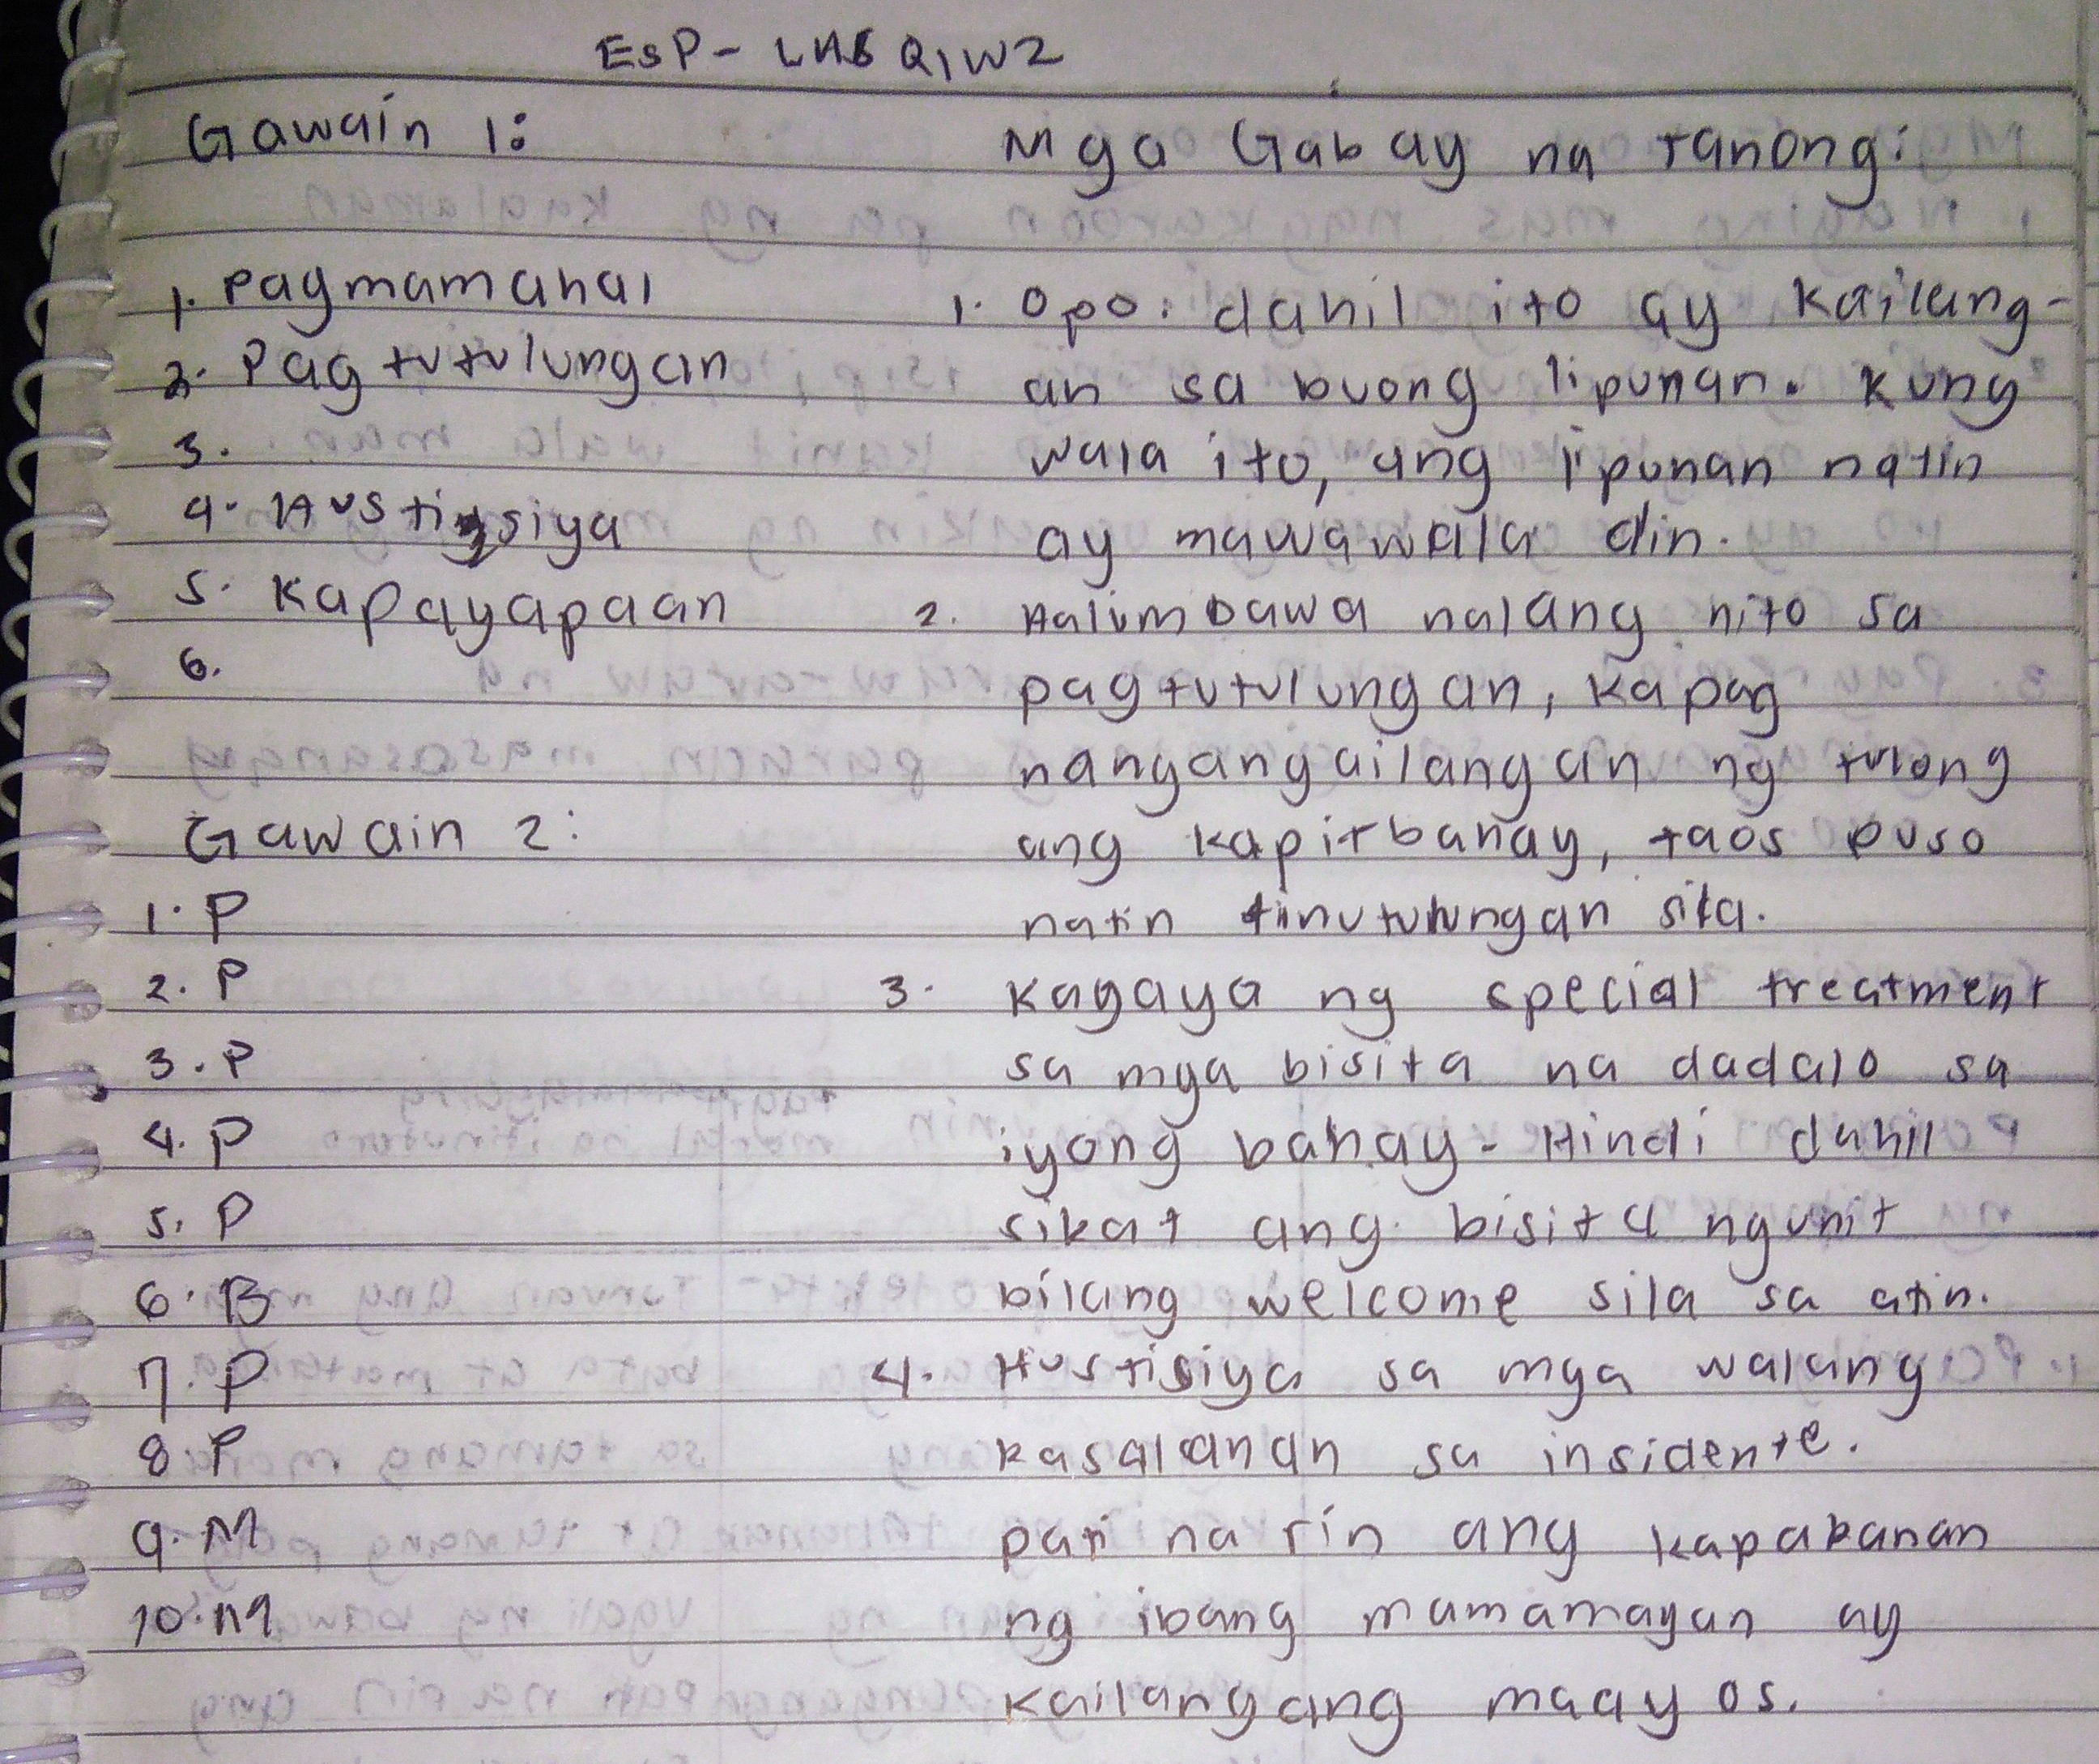 EsP - LHB Q1W2
Gawain 1:
1. Pagmamahal
2. Pagtutulungan
3.
4. Hustisiya
5. Kapayapaan
6.
Gawain 2:
1. P
2. P
3. P
4. P
5. P
6. B
7. P
8. P
9. M
10. M
Mga Gabay na Tanong:
1. Opo. dahil ito ay kailang-
an sa buong lipunan. Kung
wala ito, ang lipunan natin
ay mawawala din.
2. Halimbawa nalang nito sa
pagtutulungan, kapag
nangangailangan ng tulong
ang kapitbahay, taos puso
natin tinutulungan sila.
3. Kagaya ng special treatment
sa mga bisita na dadalo sa
iyong bahay - Hindi dahil
sikat ang bisita ngunit
bilang welcome sila sa atin.
4. Hustisiya sa mga walang
kasalanan sa insidente.
pati na rin ang kapakanan
ng ibang mamamayan ay
kailangang maayos.